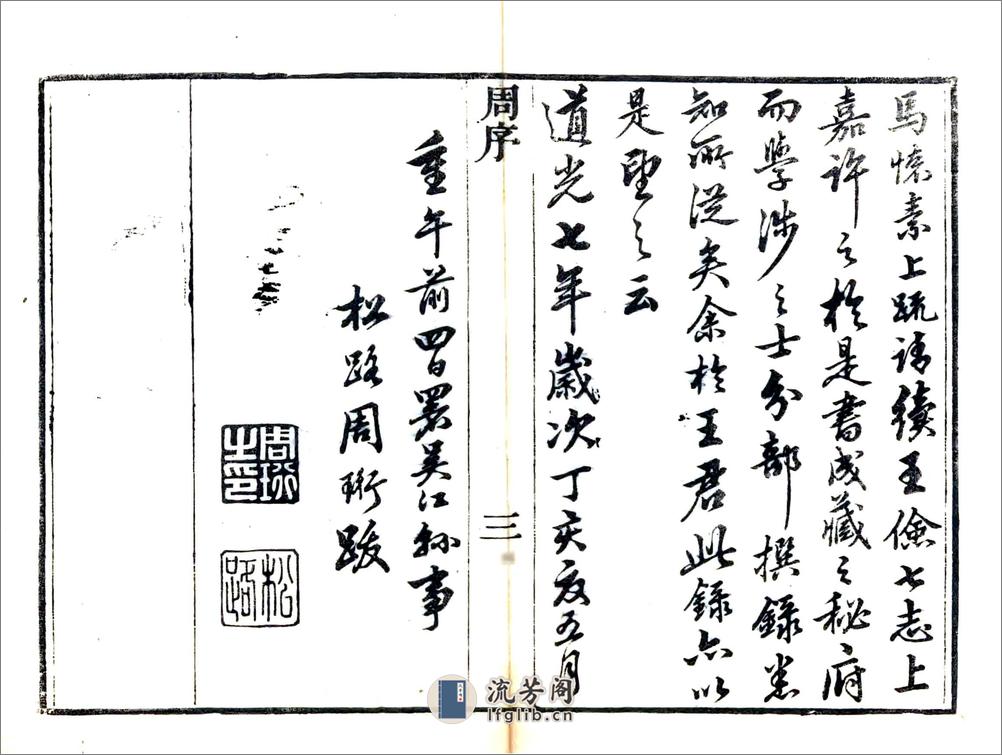 馬懷素上疏請續王儉七志上
嘉許之於是書成藏之秘府
而學涉之士分部撰錄悉
知所從矣余於王君此錄亦以
是望之云
道光七年歲次丁亥夏五月
周序
三
重午前四日署吳江縣事
松路周珩跋
周珩之印
松路
流芳阁
lfglib.cn